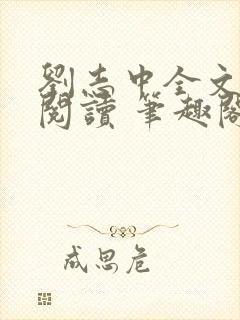 劉志中全文
閱讀 筆趣閣
成思危